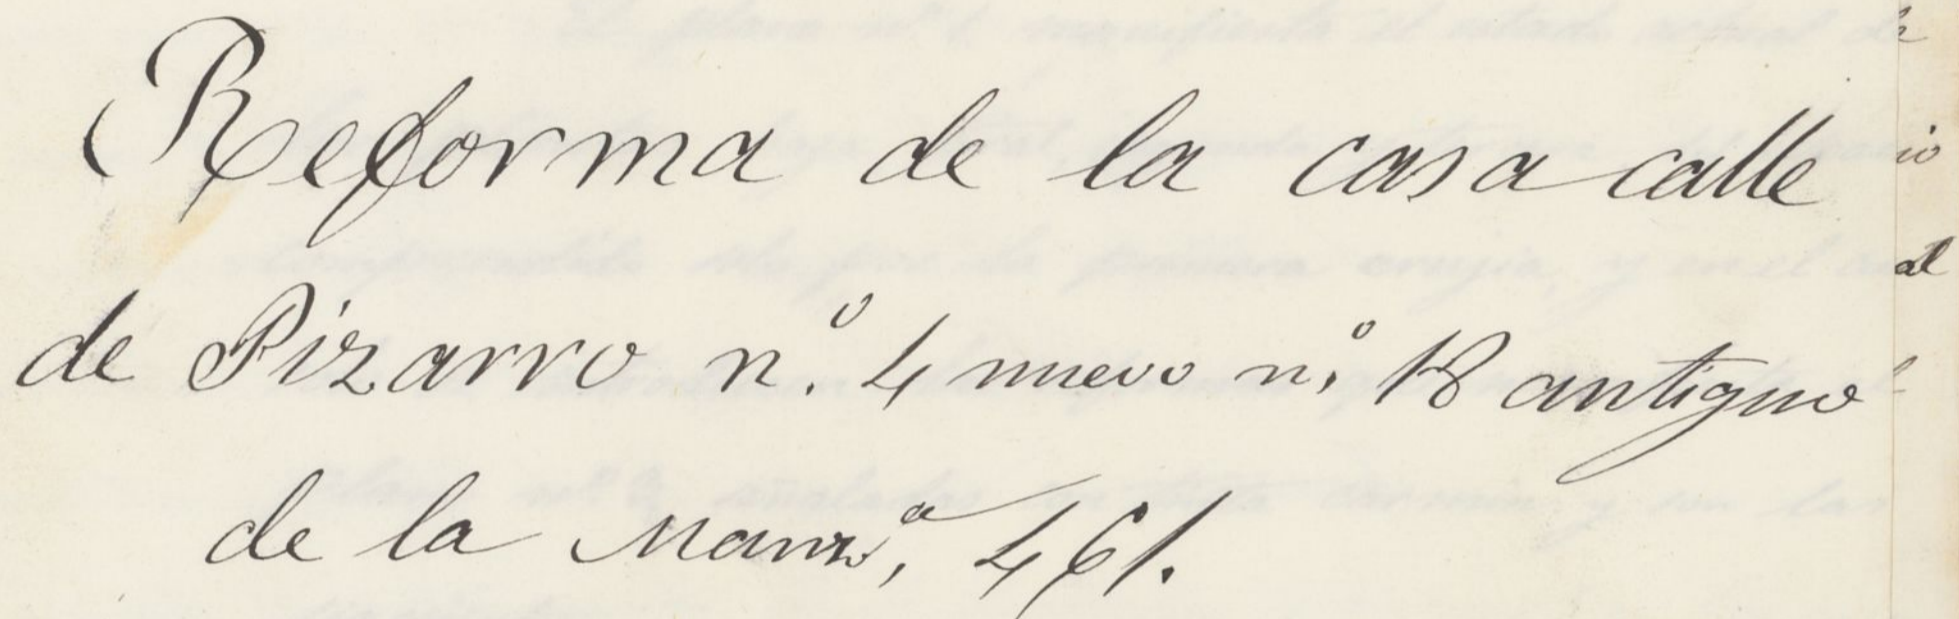 Reforma de la casa calle
de Pizarro n.º 4 nuevo n.º 18 antiguo
de la Manz.ª, 461.